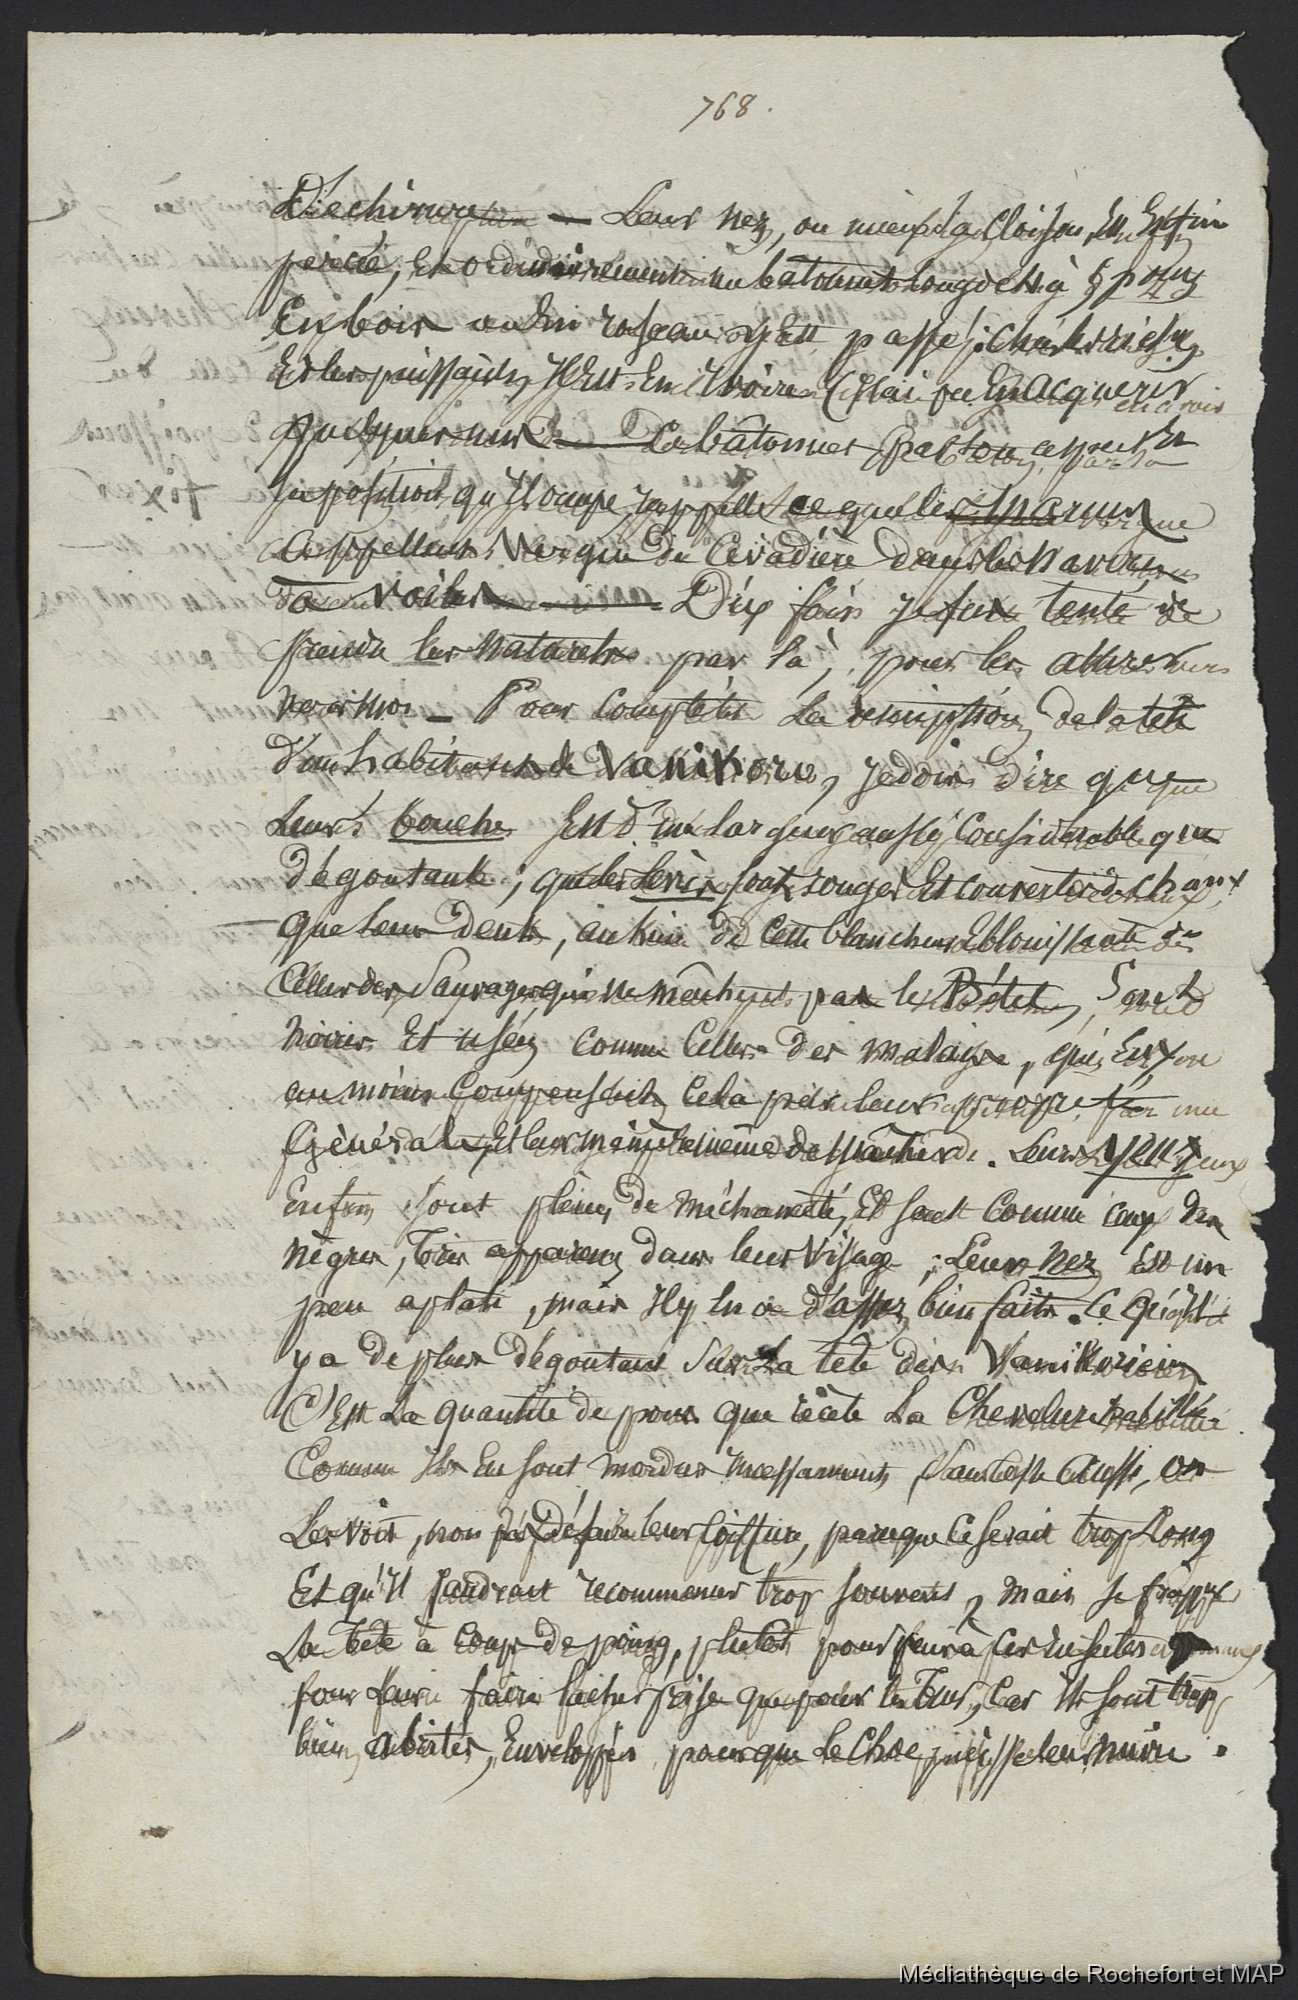 768.
Déchirure — Leur nez, ou mieux la cloison, Est Enfin
percée, Et ordinairement un bâtonnet long de 4 à 5 pouces
En bois ou En roseau y Est passé; chez les riches
Et les puissants, Il Est En Ivoire (J'ai pu En acquérir
quelques uns — Ce bâtonnet
sa position qu'Il occupe rappelle ce que les Marins
appellent Vergue de Civadière dans les Navires
à voiles — Dix fois je fus tenté de
prendre les naturels par là, pour les attirer vers
moi — Pour compléter La description de la tête
d'un habitant de Vanikoro, je dois dire que
Leur bouche Est d'une largeur aussi considérable que
dégoutante; que les lèvres sont rouges Et couvertes de chaux,
que leurs Dents, au lieu de Cette blancheur Eblouissante de
Celles des Sauvages qui ne mâchent pas le Bétel, Sont
noires Et usées comme Celles des malais, qui Eux
au moins compensent Cela par leur propreté
générale, Et leur manière même de mâcher. Leurs yeux
Enfin sont pleins de méchanceté, Et sont comme ceux des
nègres, très apparens dans leur visage; Leur nez Est un
peu aplati, mais Il y En a d'assez bien faits. Ce qu'Il
y a de plus dégoutant sur La tête des Vanikoriens
C'Est La quantité de poux que recèle La Chevelure
Comme Ils En sont mordus incessamment, Sans cesse aussi, on
Les voit, non pas défaire leur Coiffure, parceque ce serait trop Long
Et qu'Il faudrait recommencer trop souvent, mais se frapper
La tête à coups de poing, plutôt pour faire à ces insectes
pour faire lâcher prise que pour les Tuer, Car Ils sont trop
bien abrités, Enveloppés, pour que Le Choc puisse leur nuire.
Médiathèque de Rochefort et MAP